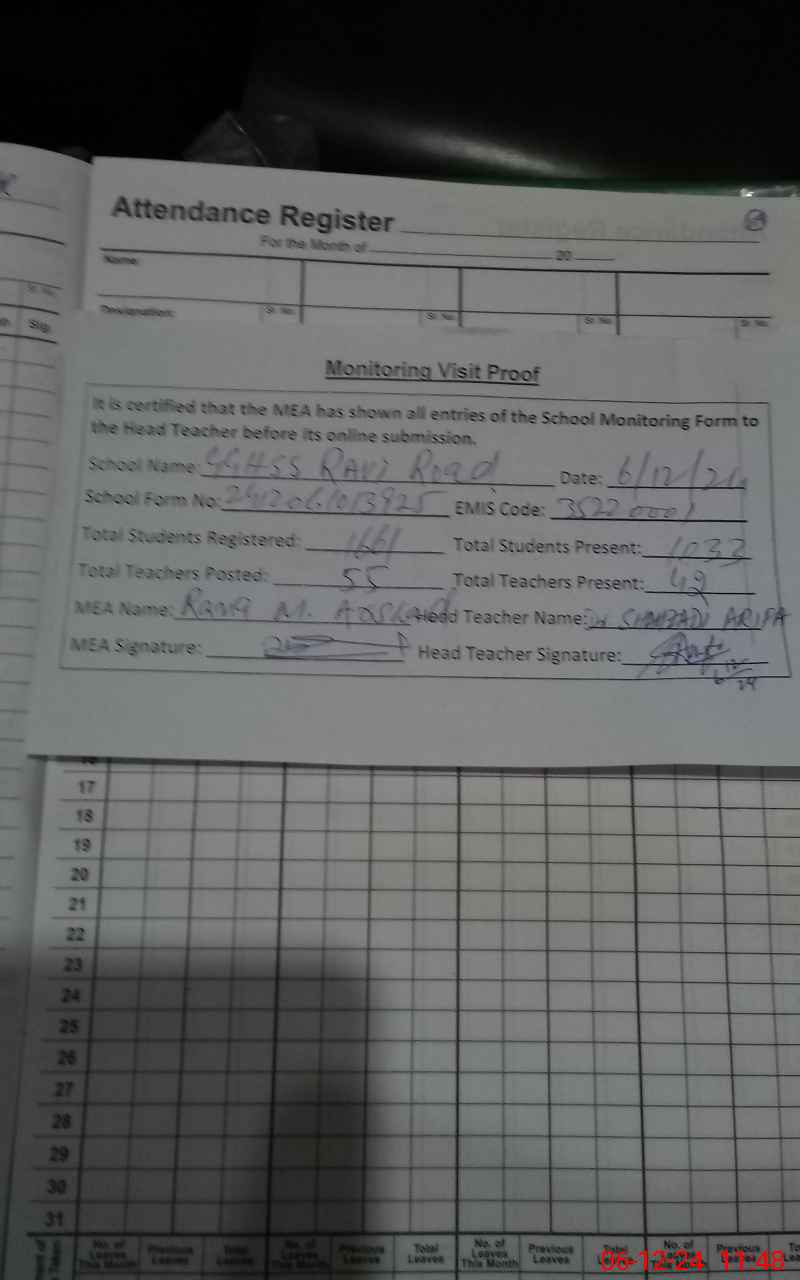 Attendance Register
For the Month of 20
Name:
Designation: Sr. No. Sr. No. Sr. No. Sr. No.
Sig.
Monitoring Visit Proof
It is certified that the MEA has shown all entries of the School Monitoring Form to
the Head Teacher before its online submission.
School Name: GGHSS Ravi Road Date: 6/12/24
School Form No: EMIS Code: 35220001
Total Students Registered: 1661 Total Students Present: 1033
Total Teachers Posted: 55 Total Teachers Present: 49
MEA Name: Rana M. Head Teacher Name: ARIFA
MEA Signature: Head Teacher Signature:
6 12 24
16
17
18
19
20
21
22
23
24
25
26
27
28
29
30
31
No. of Leaves This Month Previous Leaves Total Leaves No. of Leaves This Month Previous Leaves Total Leaves No. of Leaves This Month Previous Leaves Total No. of Previous Leaves
06-12-24 11:48